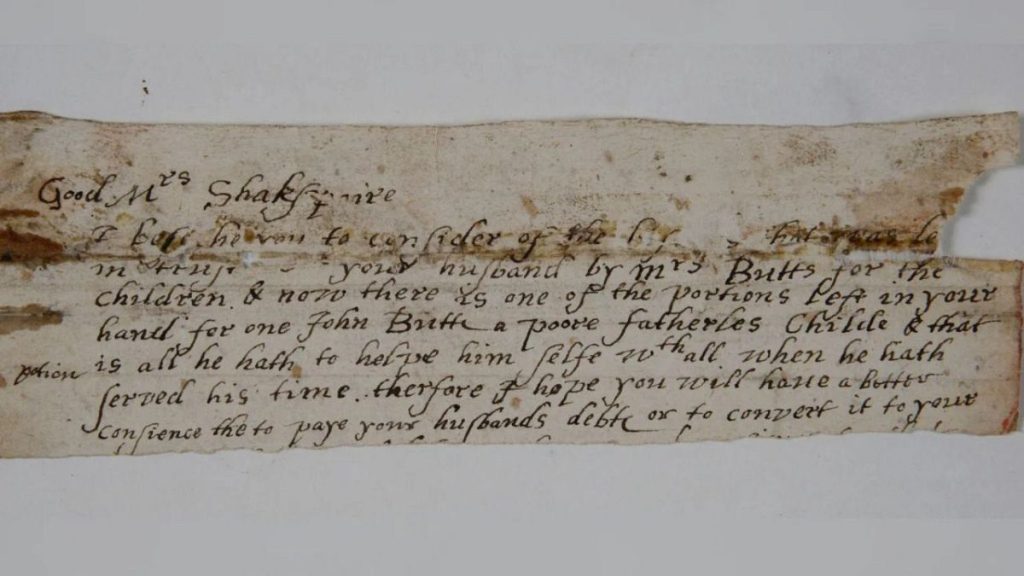 Good Mrs Shakspaire
I bese he you to consider of the that was le
in trus your husband by mrs Butts for the
Children & now there is one of the portions left in your
hand for one John Butte a poore fatherles Childe & that
potion is all he hath to helpe him selfe wth all when he hath
served his time. therfore I hope you will have a better
Consience the to paye your husbands debte or to convert it to your